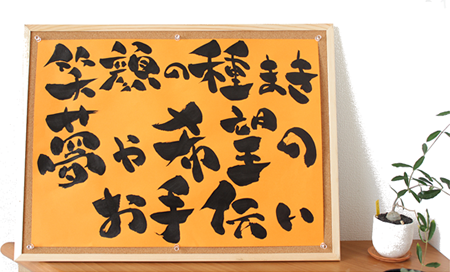 笑顔の種まき
夢や希望の
お手伝い